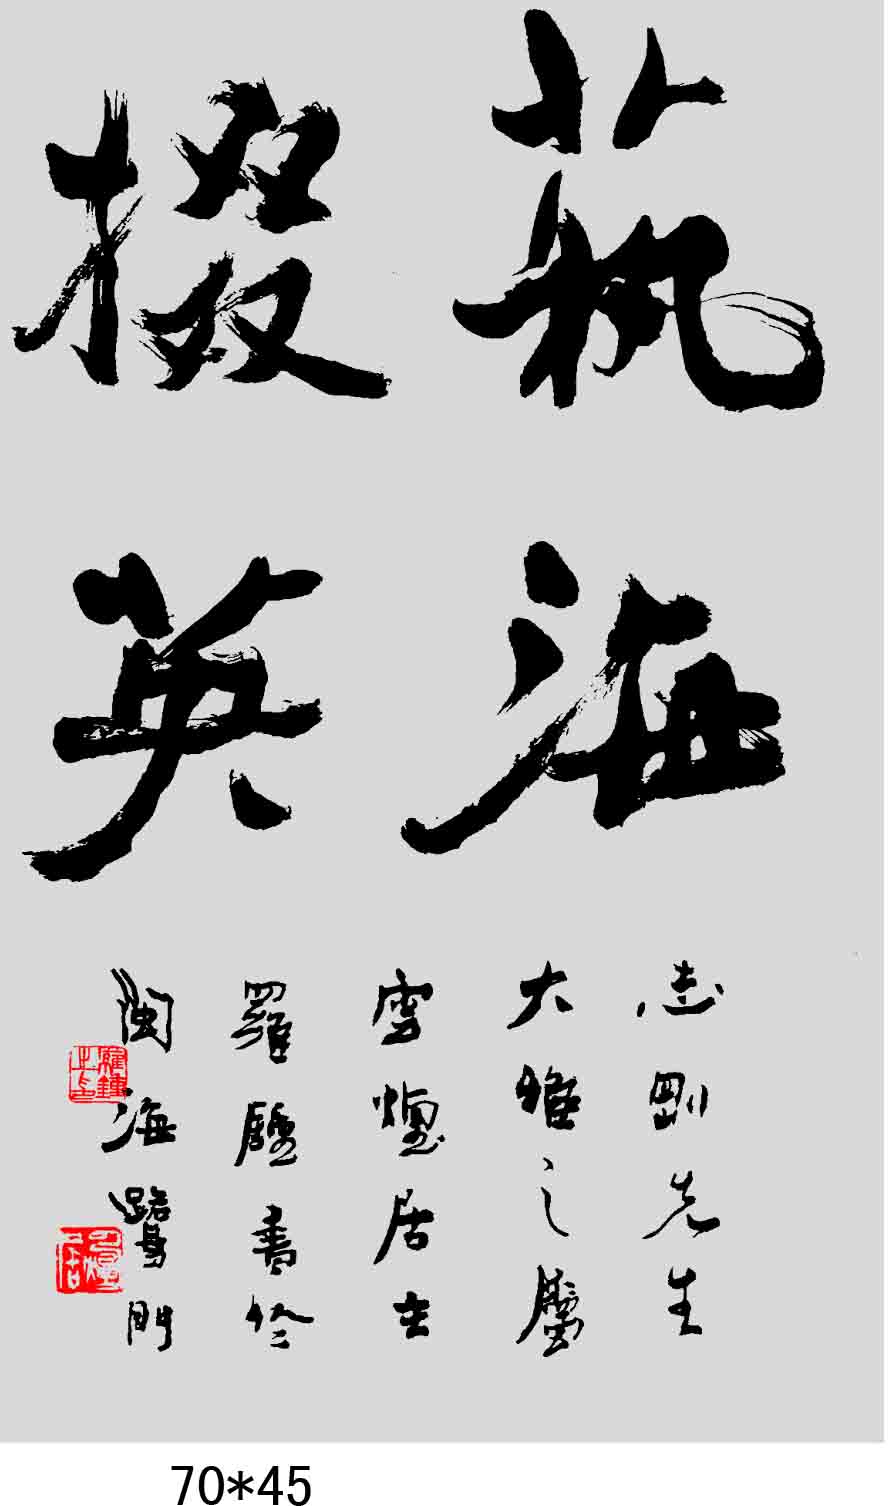 藝海
掇英
志剛先生
大雅之屬
雲煙居主
羅鍾書於
閩海鷺門
70*45